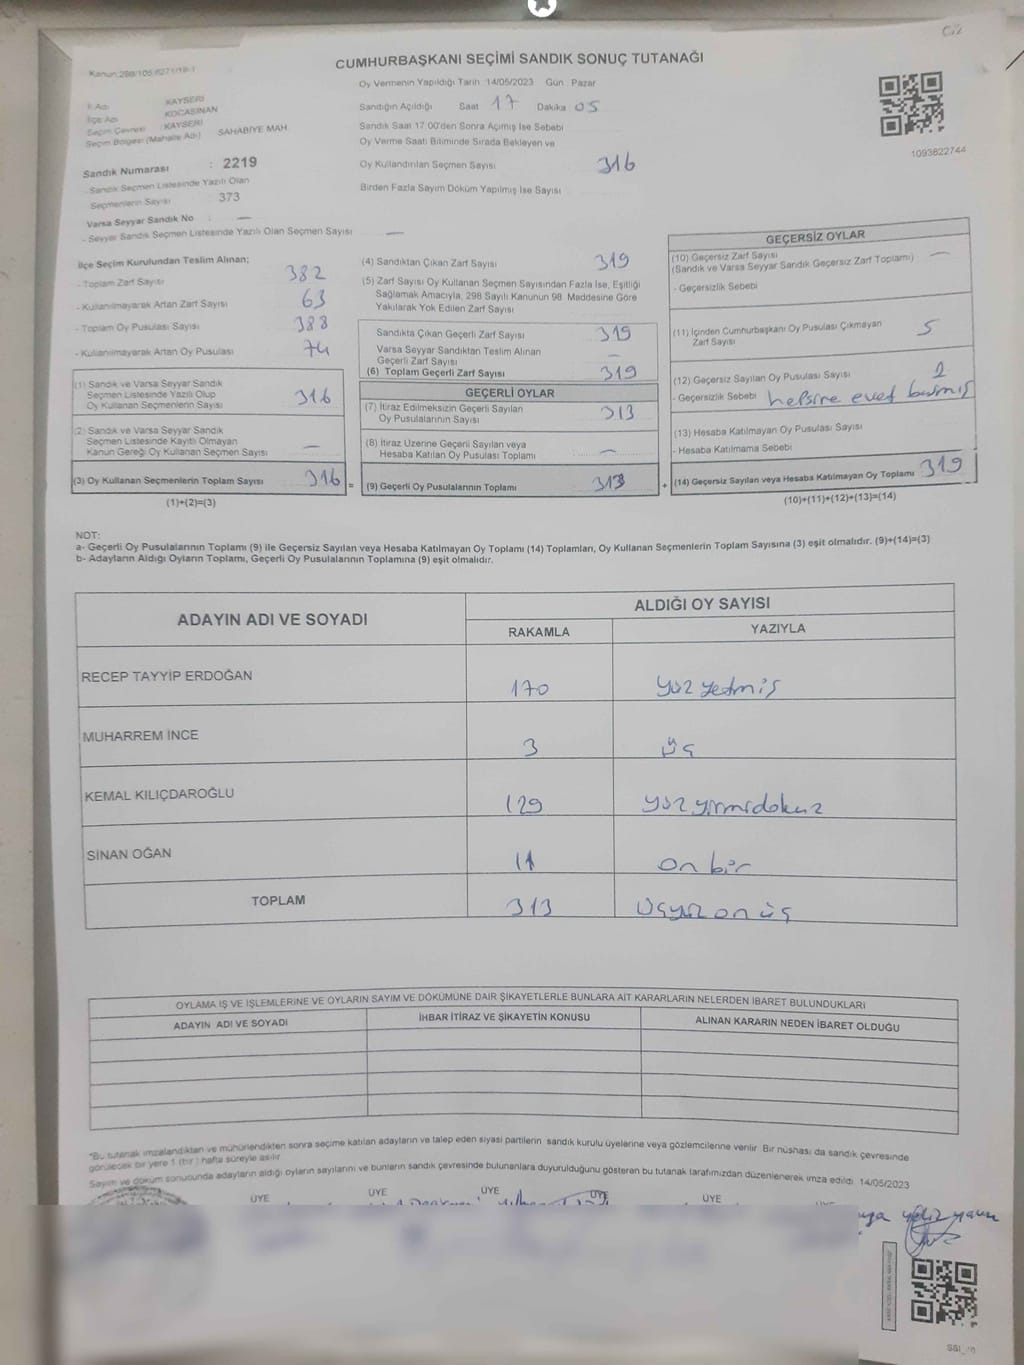 Cü2
CUMHURBAŞKANI SEÇİMİ SANDIK SONUÇ TUTANAĞI
Kanun:298/105-6271/19-1
Oy Vermenin Yapıldığı Tarih 14/05/2023 Gün Pazar
İl Adı KAYSERİ
İlçe Adı KOCASİNAN
Seçim Çevresi : KAYSERİ
Seçim Bölgesi (Mahalle Adı) SAHABİYE MAH.
Sandığın Açıldığı Saat 17 Dakika 05
Sandık Saat 17.00'den Sonra Açmış İse Sebebi
Oy Verme Saati Bitiminde Sırada Bekleyen ve
Oy Kullandırılan Seçmen Sayısı 316
Birden Fazla Sayım Döküm Yapılmış İse Sayısı
1093822744
Sandık Numarası : 2219
- Sandık Seçmen Listesinde Yazılı Olan
Seçmenlerin Sayısı : 373
Varsa Seyyar Sandık No : —
- Seyyar Sandık Seçmen Listesinde Yazılı Olan Seçmen Sayısı —
İlçe Seçim Kurulundan Teslim Alınan;
- Toplam Zarf Sayısı 382
- Kullanılmayarak Artan Zarf Sayısı 63
- Toplam Oy Pusulası Sayısı 388
- Kullanılmayarak Artan Oy Pusulası 74
(1) Sandık ve Varsa Seyyar Sandık
Seçmen Listesinde Yazılı Olup
Oy Kullanan Seçmenlerin Sayısı 316
(2) Sandık ve Varsa Seyyar Sandık
Seçmen Listesinde Kayıtlı Olmayan
Kanun Gereği Oy Kullanan Seçmen Sayısı —
(3) Oy Kullanan Seçmenlerin Toplam Sayısı 316 =
(1)+(2)=(3)
(4) Sandıktan Çıkan Zarf Sayısı 319
(5) Zarf Sayısı Oy Kullanan Seçmen Sayısından Fazla İse, Eşitliği
Sağlamak Amacıyla, 298 Sayılı Kanunun 98. Maddesine Göre
Yakılarak Yok Edilen Zarf Sayısı
Sandıkta Çıkan Geçerli Zarf Sayısı 319
Varsa Seyyar Sandıktan Teslim Alınan
Geçerli Zarf Sayısı —
(6) Toplam Geçerli Zarf Sayısı 319
GEÇERLİ OYLAR
(7) İtiraz Edilmeksizin Geçerli Sayılan
Oy Pusulalarının Sayısı 313
(8) İtiraz Üzerine Geçerli Sayılan veya
Hesaba Katılan Oy Pusulası Toplamı —
(9) Geçerli Oy Pusulalarının Toplamı 313 +
GEÇERSİZ OYLAR
(10) Geçersiz Zarf Sayısı —
(Sandık ve Varsa Seyyar Sandık Geçersiz Zarf Toplamı)
- Geçersizlik Sebebi
(11) İçinden Cumhurbaşkanı Oy Pusulası Çıkmayan
Zarf Sayısı 5
(12) Geçersiz Sayılan Oy Pusulası Sayısı
- Geçersizlik Sebebi hepsine evet basmış
(13) Hesaba Katılmayan Oy Pusulası Sayısı
- Hesaba Katılmama Sebebi
(14) Geçersiz Sayılan veya Hesaba Katılmayan Oy Toplamı 319
(10)+(11)+(12)+(13)=(14)
NOT:
a- Geçerli Oy Pusulalarının Toplamı (9) ile Geçersiz Sayılan veya Hesaba Katılmayan Oy Toplamı (14) Toplamları, Oy Kullanan Seçmenlerin Toplam Sayısına (3) eşit olmalıdır. (9)+(14)=(3)
b- Adayların Aldığı Oyların Toplamı, Geçerli Oy Pusulalarının Toplamına (9) eşit olmalıdır.
ADAYIN ADI VE SOYADI ALDIĞI OY SAYISI
RAKAMLA YAZIYLA
RECEP TAYYİP ERDOĞAN 170 yüz yetmiş
MUHARREM İNCE 3 üç
KEMAL KILIÇDAROĞLU 129 yüz yirmidokuz
SİNAN OĞAN 11 on bir
TOPLAM 313 üçyüz on üç
OYLAMA İŞ VE İŞLEMLERİNE VE OYLARIN SAYIM VE DÖKÜMÜNE DAİR ŞİKAYETLERLE BUNLARA AİT KARARLARIN NELERDEN İBARET BULUNDUKLARI
ADAYIN ADI VE SOYADI İHBAR İTİRAZ VE ŞİKAYETİN KONUSU ALINAN KARARIN NEDEN İBARET OLDUĞU
*Bu tutanak imzalandıktan ve mühürlendikten sonra seçime katılan adayların ve talep eden siyasi partilerin sandık kurulu üyelerine veya gözlemcilerine verilir. Bir nüshası da sandık çevresinde
görülecek bir yere 1 (bir ) hafta süreyle asılır.
Sayım ve döküm sonucunda adayların aldığı oyların sayılarını ve bunların sandık çevresinde bulunanlara duyurulduğunu gösteren bu tutanak tarafımızdan düzenlenerek imza edildi. 14/05/2023
ÜYE ÜYE ÜYE ÜYE ÜYE